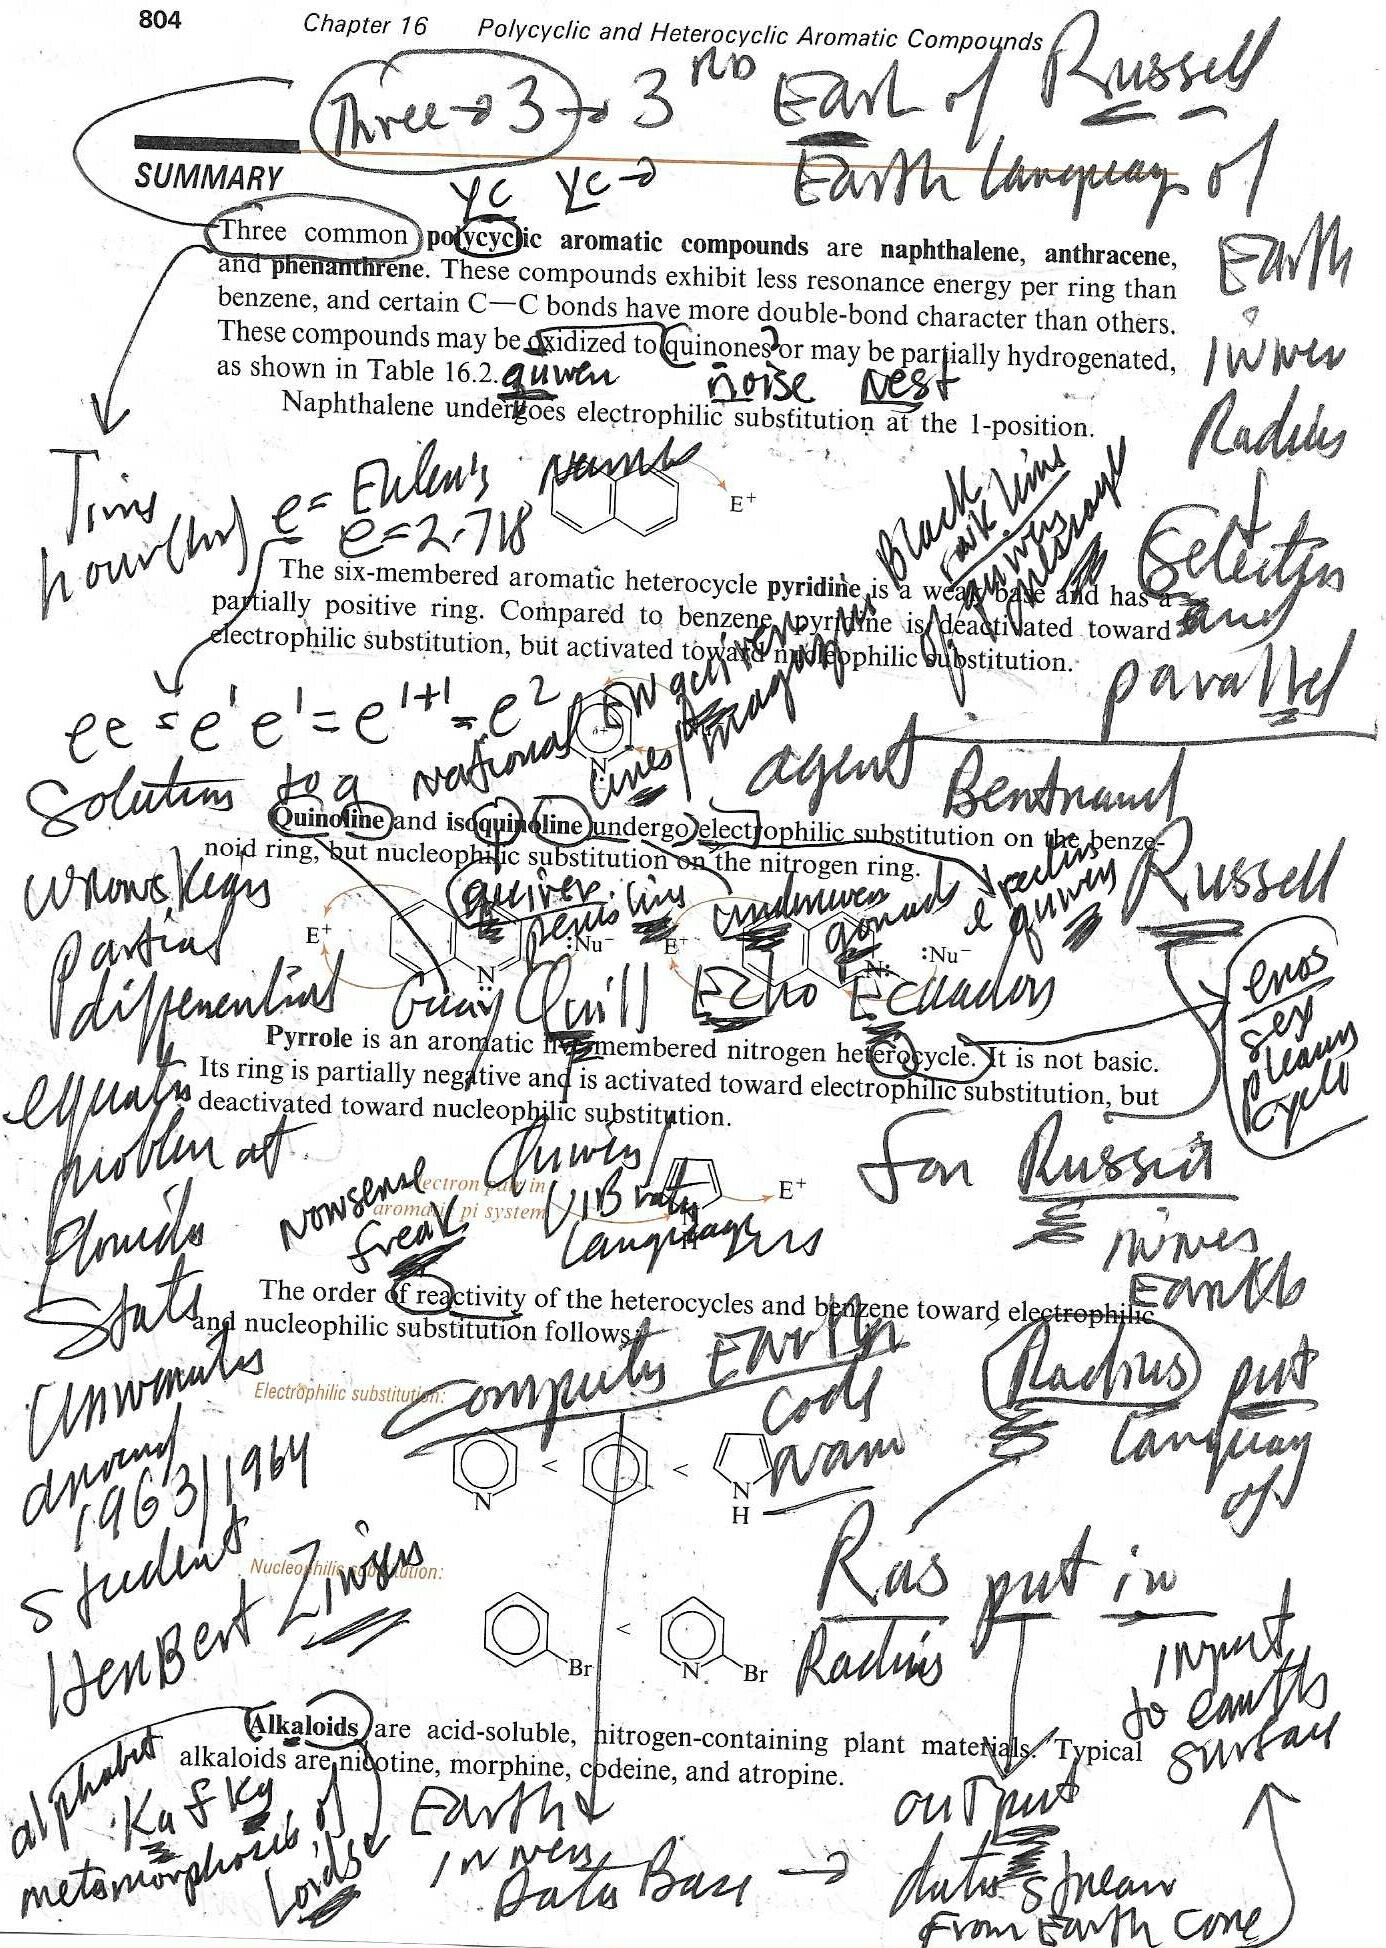 804 Chapter 16 Polycyclic and Heterocyclic Aromatic Compounds
Three → 3 → 3 RD Earl of Russell
SUMMARY
yc yc →
Earth language of
Three common polycyclic aromatic compounds are naphthalene, anthracene,
and phenanthrene. These compounds exhibit less resonance energy per ring than
benzene, and certain C—C bonds have more double-bond character than others.
These compounds may be oxidized to quinones or may be partially hydrogenated,
as shown in Table 16.2.
quiver noise nest
Earth
inner
Radius
Naphthalene undergoes electrophilic substitution at the 1-position.
E+
Time
hour(hr)
e = Euler's number
e = 2.718
Black
of
The six-membered aromatic heterocycle pyridine is a weak base and has a
partially positive ring. Compared to benzene, pyridine is deactivated toward
electrophilic substitution, but activated toward nucleophilic substitution.
and
parallel
ee = e1 e1 = e1+1 = e2
δ+
N
national
lines
agent
Bertrand
Russell
Solution to a
Quinoline and isoquinoline undergo electrophilic substitution on the benze-
noid ring, but nucleophilic substitution on the nitrogen ring.
Wronskian
Partial
differential
equation
problem at
Florida
State
University
during
1963/1964
student
HerBert Zinser
E+ N :Nu−
E+ N: :Nu−
quiver penis line
underwear gonads
Guay Quill Echo Ecuador
eros
sex
cycle
Pyrrole is an aromatic five-membered nitrogen heterocycle. It is not basic.
Its ring is partially negative and is activated toward electrophilic substitution, but
deactivated toward nucleophilic substitution.
for Russia
inner
Earth
Radius put
language
of
nonsense
freak
electron pair in
aromatic pi system
E+
N
H
VIBrate
language
The order of reactivity of the heterocycles and benzene toward electrophilic
and nucleophilic substitution follows:
computer Earth
code
name
Electrophilic substitution:
N < < N
H
Ras put in
Radius
input
to earth
surface
Nucleophilic substitution:
Br < N Br
Alkaloids are acid-soluble, nitrogen-containing plant materials. Typical
alkaloids are nicotine, morphine, codeine, and atropine.
alphabet
Kafka
metamorphosis of
Loids
Earth
inner
Data Base →
output
data stream
From Earth Core